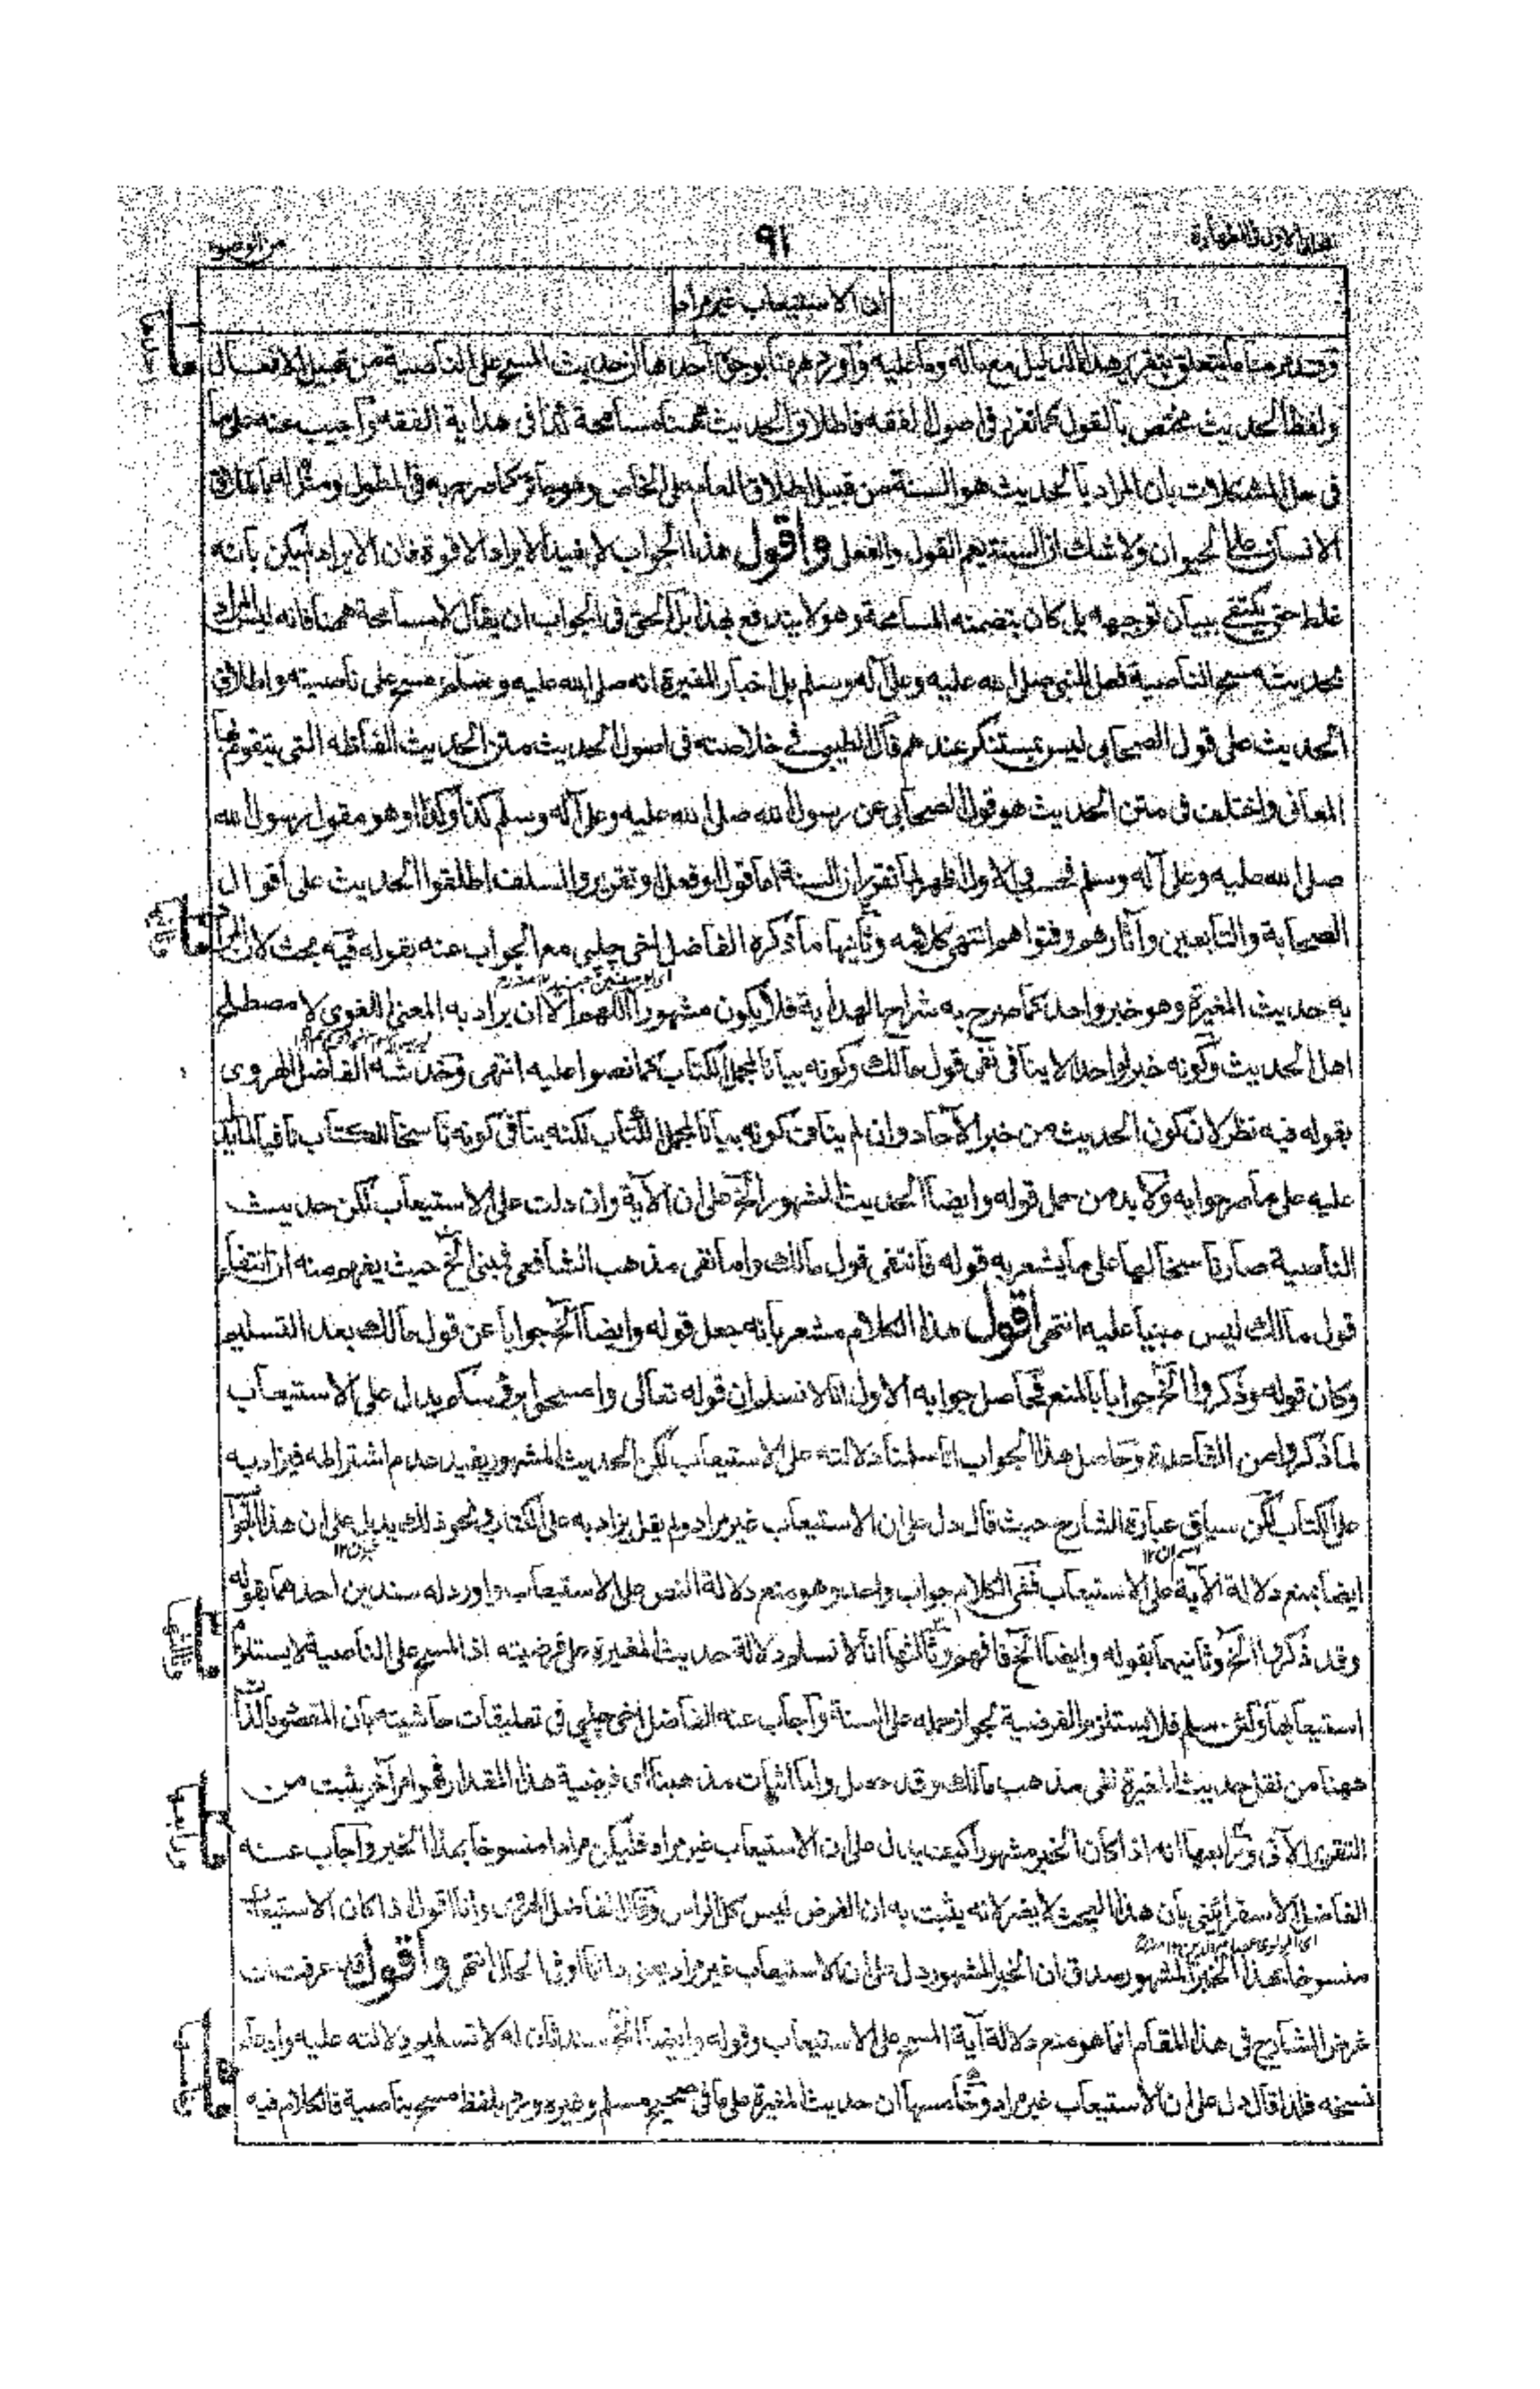 ٩١
من الوضوء
ان الاستيعاب غير مراد
وقد مر منا ما يتعلق بتقرير هذا الدليل مع ماله وما عليه وأورد ههنا بوجوه أحدها ان حديث المسح على الناصية من قبيل الافعال
ولفظ الحديث مختص بالقول كما تقرر في اصول الفقه فاطلاق الحديث ههنا مسامحة كذا في هداية الفقه وأجيب عنه على ما
في حل المشكلات بان المراد بالحديث هو السنة من قبيل اطلاق العام على الخاص وهو جائز كما صرح به في المطول ومثله باطلاق
الانسان على الحيوان ولا شك ان السنة يعم القول والفعل وأقول هذا الجواب لا يفيد الايراد الا قوة فان الايراد لم يكن بانه
غلط حتى يكتفي ببيان توجيهه بل كان بتضمنه المسامحة وهو لا يندفع بهذا بل الحق في الجواب ان يقال لا مسامحة ههنا فانه ليس المراد
بحديث مسح الناصية فعل النبي صلى الله عليه وعلى آله وسلم بل اخبار المغيرة انه صلى الله عليه وسلم مسح على ناصيته واطلاق
الحديث على قول الصحابي ليس بمستنكر عندهم قال الطيبي في خلاصته في اصول الحديث متن الحديث الفاظه التي يتقوم بها
المعاني واختلف في متن الحديث هو قول الصحابي عن رسول الله صلى الله عليه وعلى آله وسلم كذا وكذا او هو مقول رسول الله
صلى الله عليه وعلى آله وسلم فحسب والاول اظهر لما تقرر ان السنة اما قول او فعل او تقرير والسلف اطلقوا الحديث على اقوال
الصحابة والتابعين وآثارهم وفتواهم انتهى كلامه وثانيها ما ذكره الفاضل اخي چلپي مع الجواب عنه بقوله فيه بحث لان
به حديث المغيرة وهو خبر واحد كما صرح به شراح الهداية فلا يكون مشهورا اللهم الا ان يراد به المعنى اللغوي لا مصطلح
اهل الحديث وكونه خبر الواحد لا ينافي نفي قول مالك وكونه بيانا لمجمل الكتاب كما نصوا عليه انتهى وخدشه الفاضل الهروي
بقوله فيه نظر لان كون الحديث من خبر الآحاد وان لم يناف كونه بيانا لمجمل الكتاب لكنه ينافي كونه ناسخا للكتاب نافيا لما يدل
عليه على ما مر جوابه ولا بد من حمل قوله وايضا الحديث المشهور الخ على ان الآية وان دلت على الاستيعاب لكن حديث
الناصية صار ناسخا لها على ما يشعر به قوله فانتفى قول مالك واما نفي مذهب الشافعي فمبني الخ حيث يفهم منه ان انتفاء
قول مالك ليس مبنيا عليه انتهى أقول هذا الكلام مشعر بانه جعل قوله وايضا الخ جوابا عن قول مالك بعد التسليم
وكان قوله وذكروا الخ جوابا بالمنع فحاصل جوابه الاول انا لا نسلم ان قوله تعالى وامسحوا برؤسكم يدل على الاستيعاب
لما ذكروا من القاعدة وحاصل هذا الجواب انا سلمنا دلالته على الاستيعاب لكن الحديث المشهور يفيد عدم اشتراطه فيزاد به
على الكتاب لكن سياق عبارة الشارح حيث قال دل على ان الاستيعاب غير مراد ولم يقل يزاد به على الكتاب ونحو ذلك يدل على ان هذا الجواب
ايضا بمنع دلالة الآية على الاستيعاب ففي الكلام جواب واحد وهو منع دلالة النص على الاستيعاب واورد له سندين احدهما بقوله
وقد ذكروا الخ وثانيهما بقوله وايضا الخ فافهم وثالثها انا لا نسلم دلالة حديث المغيرة على فرضيته اذ المسح على الناصية لا يستلزم
استيعابها ولئن سلم فلا يستلزم الفرضية لجواز حمله على السنة وأجاب عنه الفاضل اخي چلپي في تعليقات حاشيته بان المقصود
ههنا من نقل حديث المغيرة نفي مذهب مالك وقد حصل واما اثبات مذهبنا اى فرضية هذا المقدار فهو امر آخر يثبت من
التقرير الآتي ورابعها انه اذا كان الخبر مشهورا كيف يدل على ان الاستيعاب غير مراد فليكن مرادا منسوخا بهذا الخبر وأجاب عنه
الفاضل الاسفرائني بان هذا البحث لا يضر لانه يثبت به ان الفرض ليس كل الراس وقال الفاضل الهروي وانا اقول اذا كان الاستيعاب
منسوخا بهذا الخبر المشهور صدق ان الخبر المشهور دل على ان الاستيعاب غير مراد به دائما او في الحال انتهى وأقول قد عرفت ان
غرض الشارح في هذا المقام انما هو منع دلالة آية المسح على الاستيعاب وقوله وايضا الخ سند ثان له لا تسليم دلالته عليه وادعاء
نسخه فلذا قال دل على ان الاستيعاب غير مراد وخامسها ان حديث المغيرة على ما في صحيح مسلم وغيره ورد بلفظ مسح بناصية فالكلام فيه